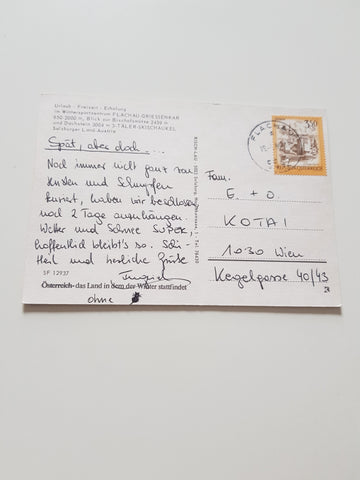 Urlaub - Freizeit - Erholung
im Wintersportzentrum FLACHAU-GRIESSENKAR
950-2000 m, Blick zur Bischofsmütze 2459 m
und Dachstein 3004 m 3-TÄLER-SKISCHAUKEL
Salzburger Land Austria
Spät, aber doch ....
Noch immer nicht ganz von
Husten und Schnupfen
kuriert, haben wir beschlossen
noch 2 Tage anzuhängen.
Wetter und Schnee SUPER,
hoffentlich bleibt's so. Schi-
Heil und herzliche Grüße
SF 12937
Österreich - das Land in dem der Winter stattfindet
ohne
FLACHAU
3.50
REPUBLIK ÖSTERREICH
Fam.
E. + O
KOTAI
1030 Wien
Kegelgasse 40/43